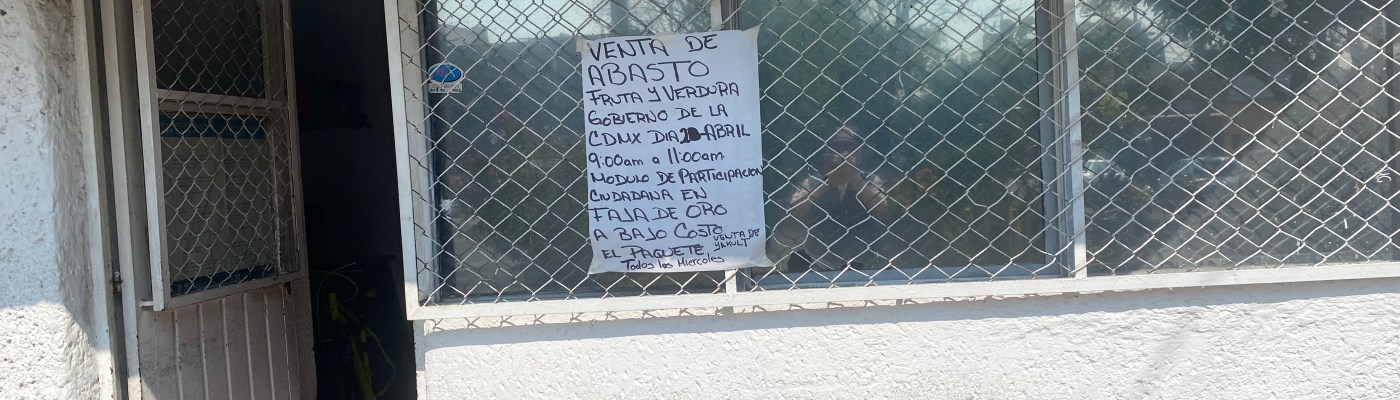 VENTA DE
ABASTO
FRUTA Y VERDURA
GOBIERNO DE LA
CDMX DIA 20 ABRIL
9:00am a 11:00am
MODULO DE PARTICIPACION
CIUDADANA EN
FAJA DE ORO
A BAJO COSTO
EL PAQUETE
VENTA DE
YAKULT
Todos los Miercoles